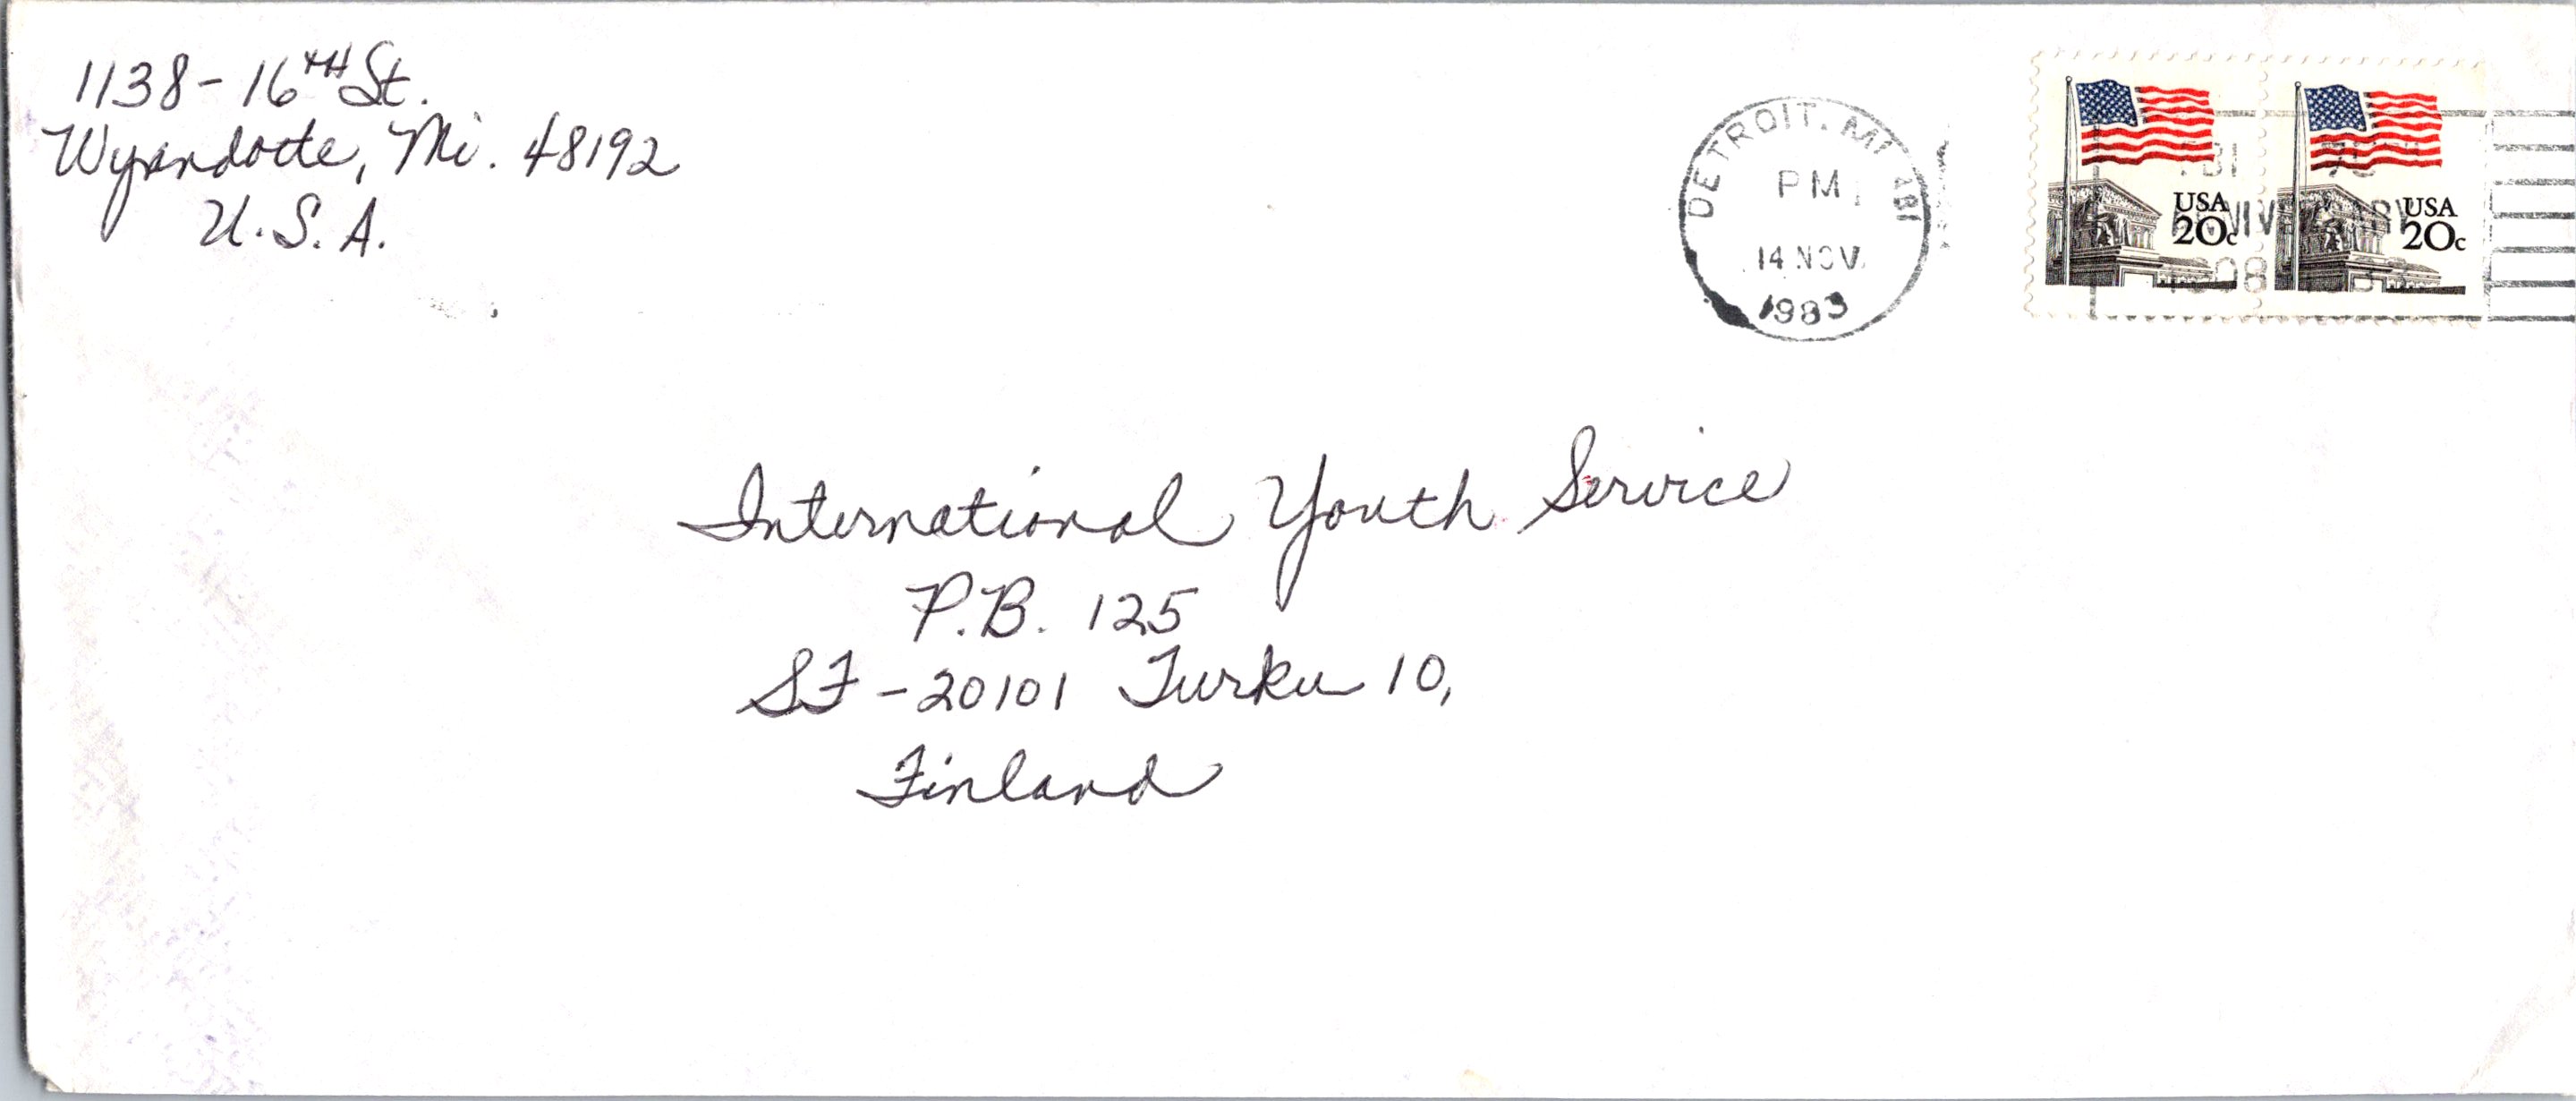 1138-16TH St.
Wyandotte, Mi. 48192
U.S.A.
DETROIT, MI 481
PM
14 NOV
1983
FBI 75TH
ANNIVERSARY
1908
USA
20c
USA
20c
International Youth Service
P.B. 125
SF-20101 Turku 10,
Finland